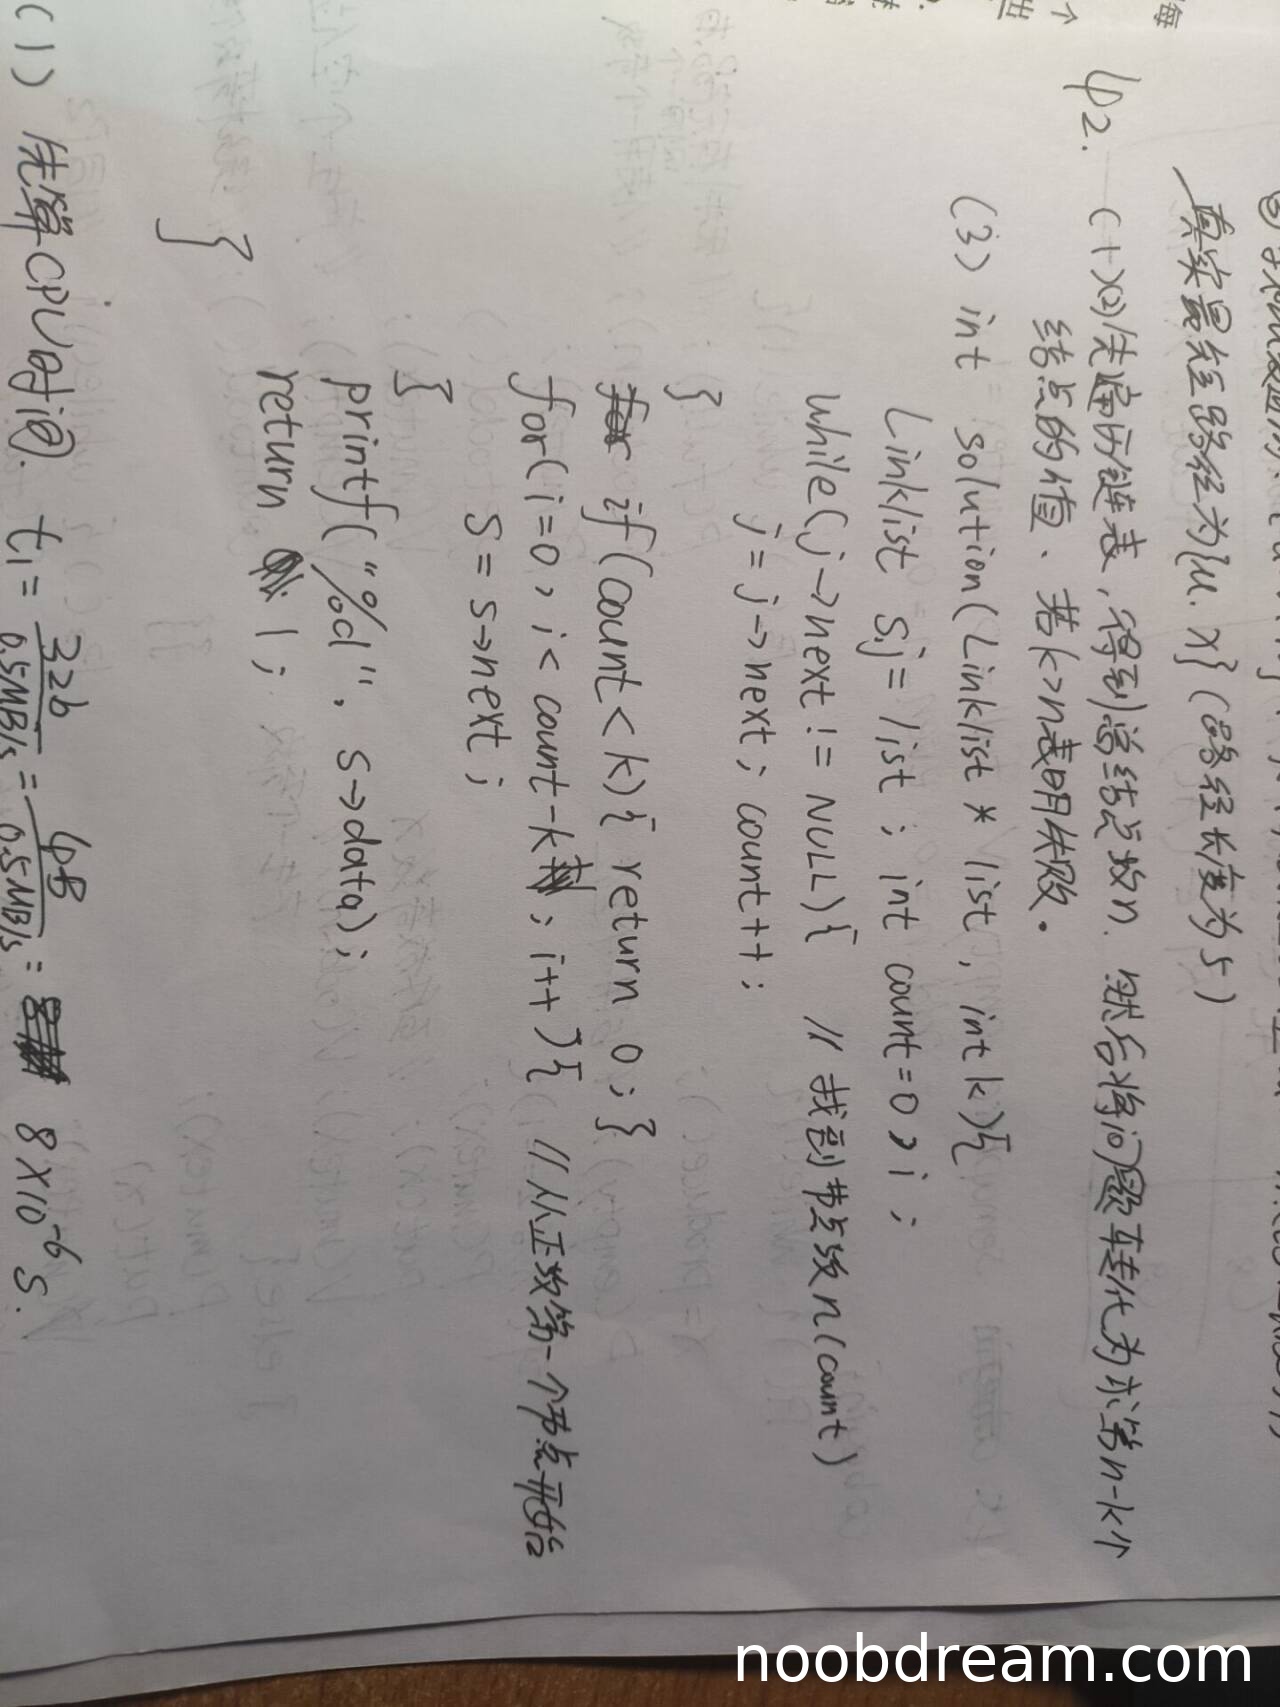 真实最短路径为{u. x} (路径长度为5)
42. (1)(2)先遍历链表,得到总结点数n. 然后将问题转化为求第n-k个
结点的值. 若k>n表明失败.
(3) int solution(Linklist * list, int k){
Linklist s,j = list; int count=0, i;
while(j->next != NULL){ // 找到节点数n(count)
j = j->next; count++;
}
if(count<k){ return 0; }
for(i=0, i<count-k; i++){ // 从正数第一个节点开始
s = s->next;
}
printf("%d", s->data);
return 1;
}
(1) 先算CPU时间. t₁ = 32b/0.5MB/s = 4B/0.5MB/s = 8×10⁻⁶ s.
noobdream.com